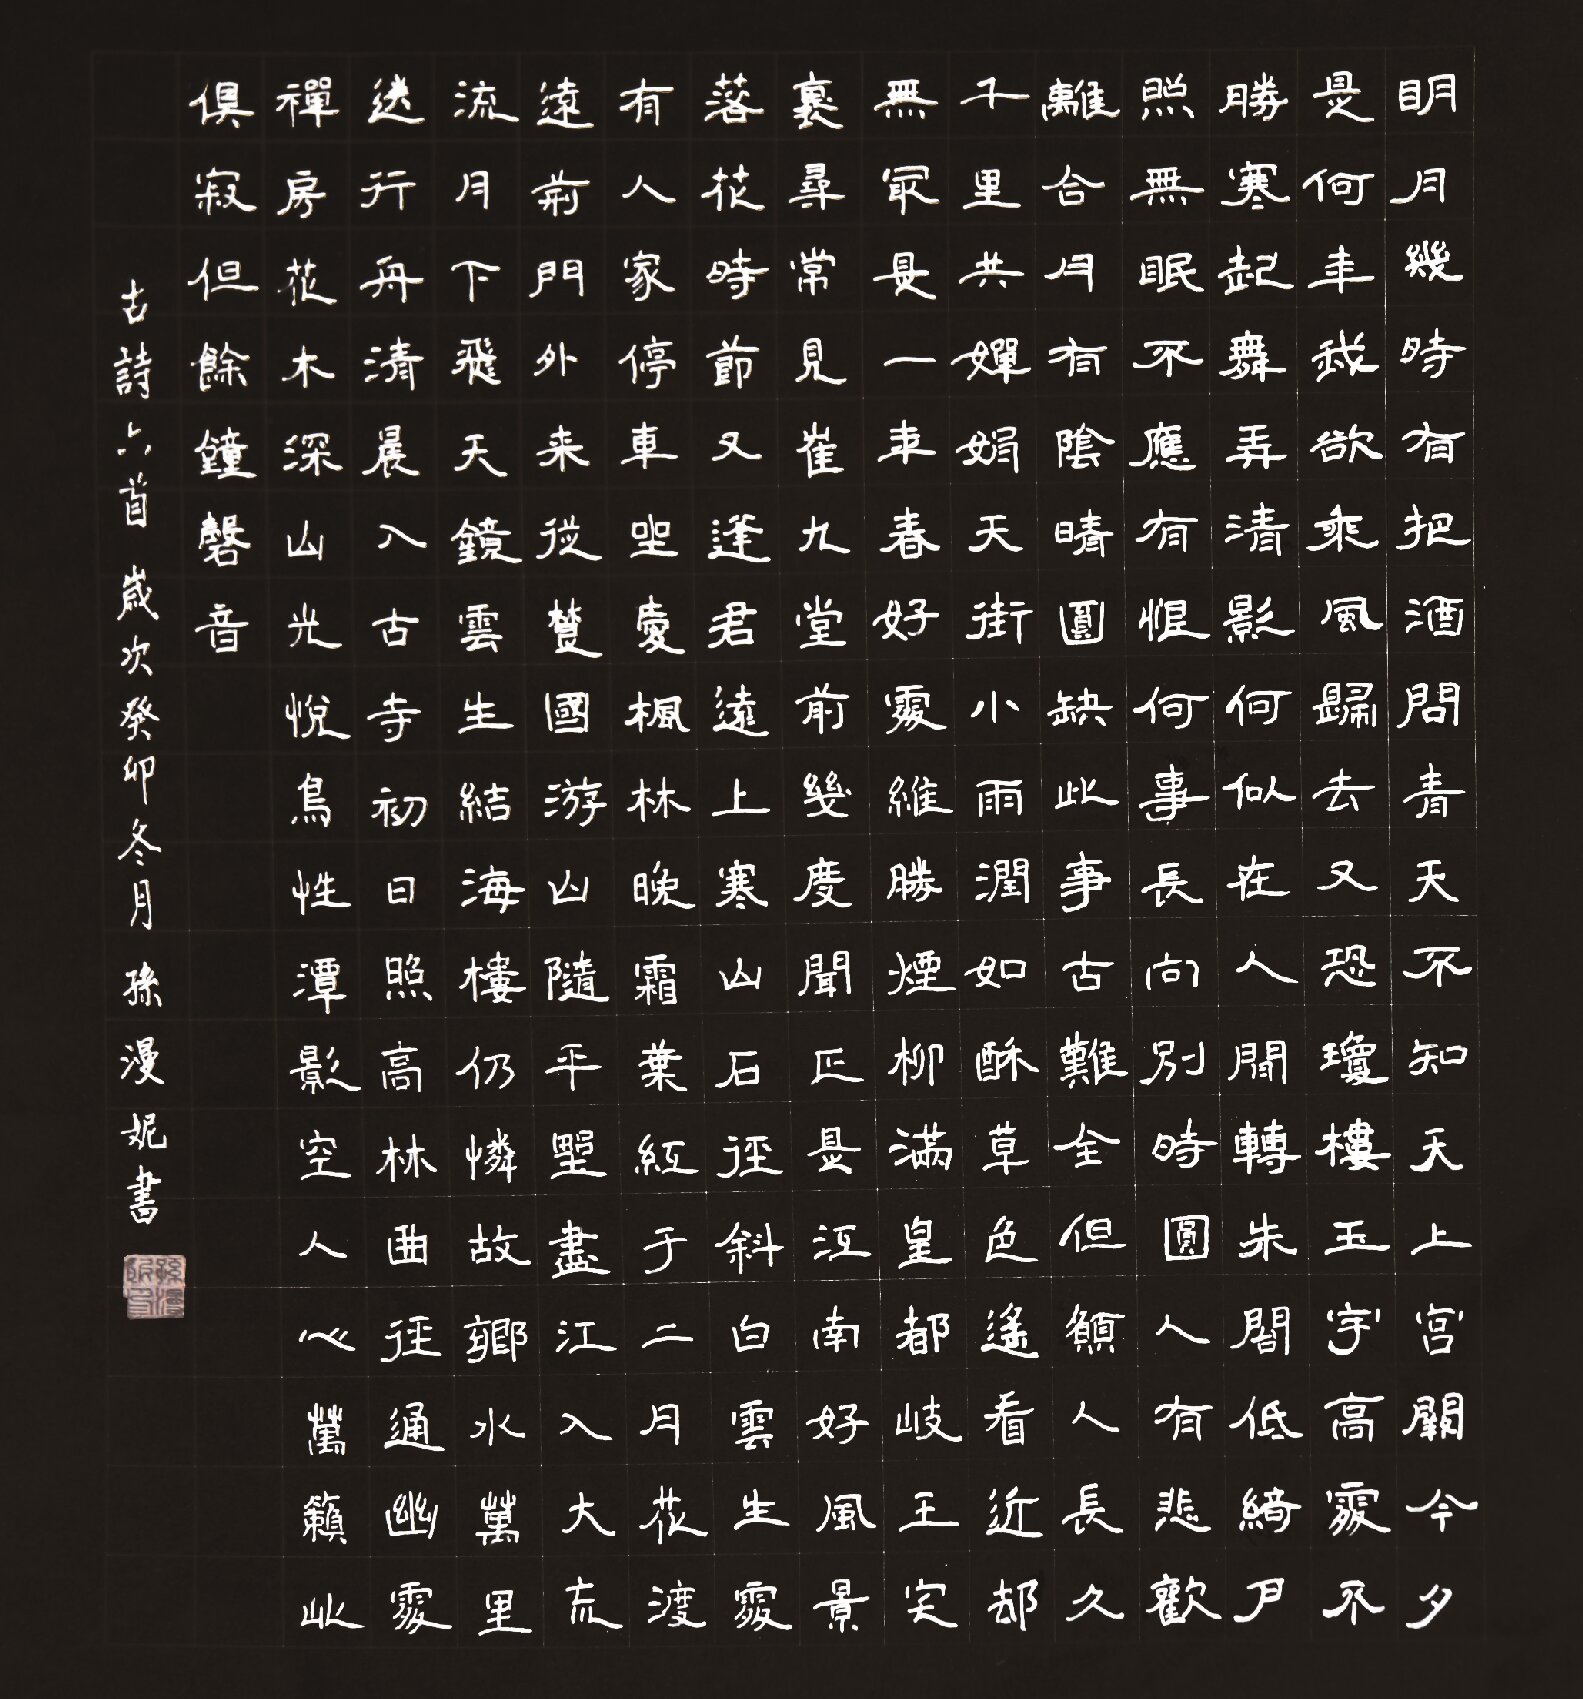 明月幾時有把酒問青天不知天上宮闕今夕
是何年我欲乘風歸去又恐瓊樓玉宇高處不
勝寒起舞弄清影何似在人間轉朱閣低綺戶
照無眠不應有恨何事長向別時圓人有悲歡
離合月有陰晴圓缺此事古難全但願人長久
千里共嬋娟天街小雨潤如酥草色遙看近却
無冣是一年春好處維勝煙柳滿皇都岐王宅
裏尋常見崔九堂前幾度聞正是江南好風景
落花時節又逢君遠上寒山石徑斜白雲生處
有人家停車坐愛楓林晚霜葉紅于二月花渡
遠荊門外来從楚國游山隨平野盡江入大荒
流月下飛天鏡雲生結海樓仍憐故鄉水萬里
送行舟清晨入古寺初日照高林曲徑通幽處
禪房花木深山光悅鳥性潭影空人心萬籟此
俱寂但餘鐘磬音
古詩六首 歲次癸卯冬月 孫漫妮書